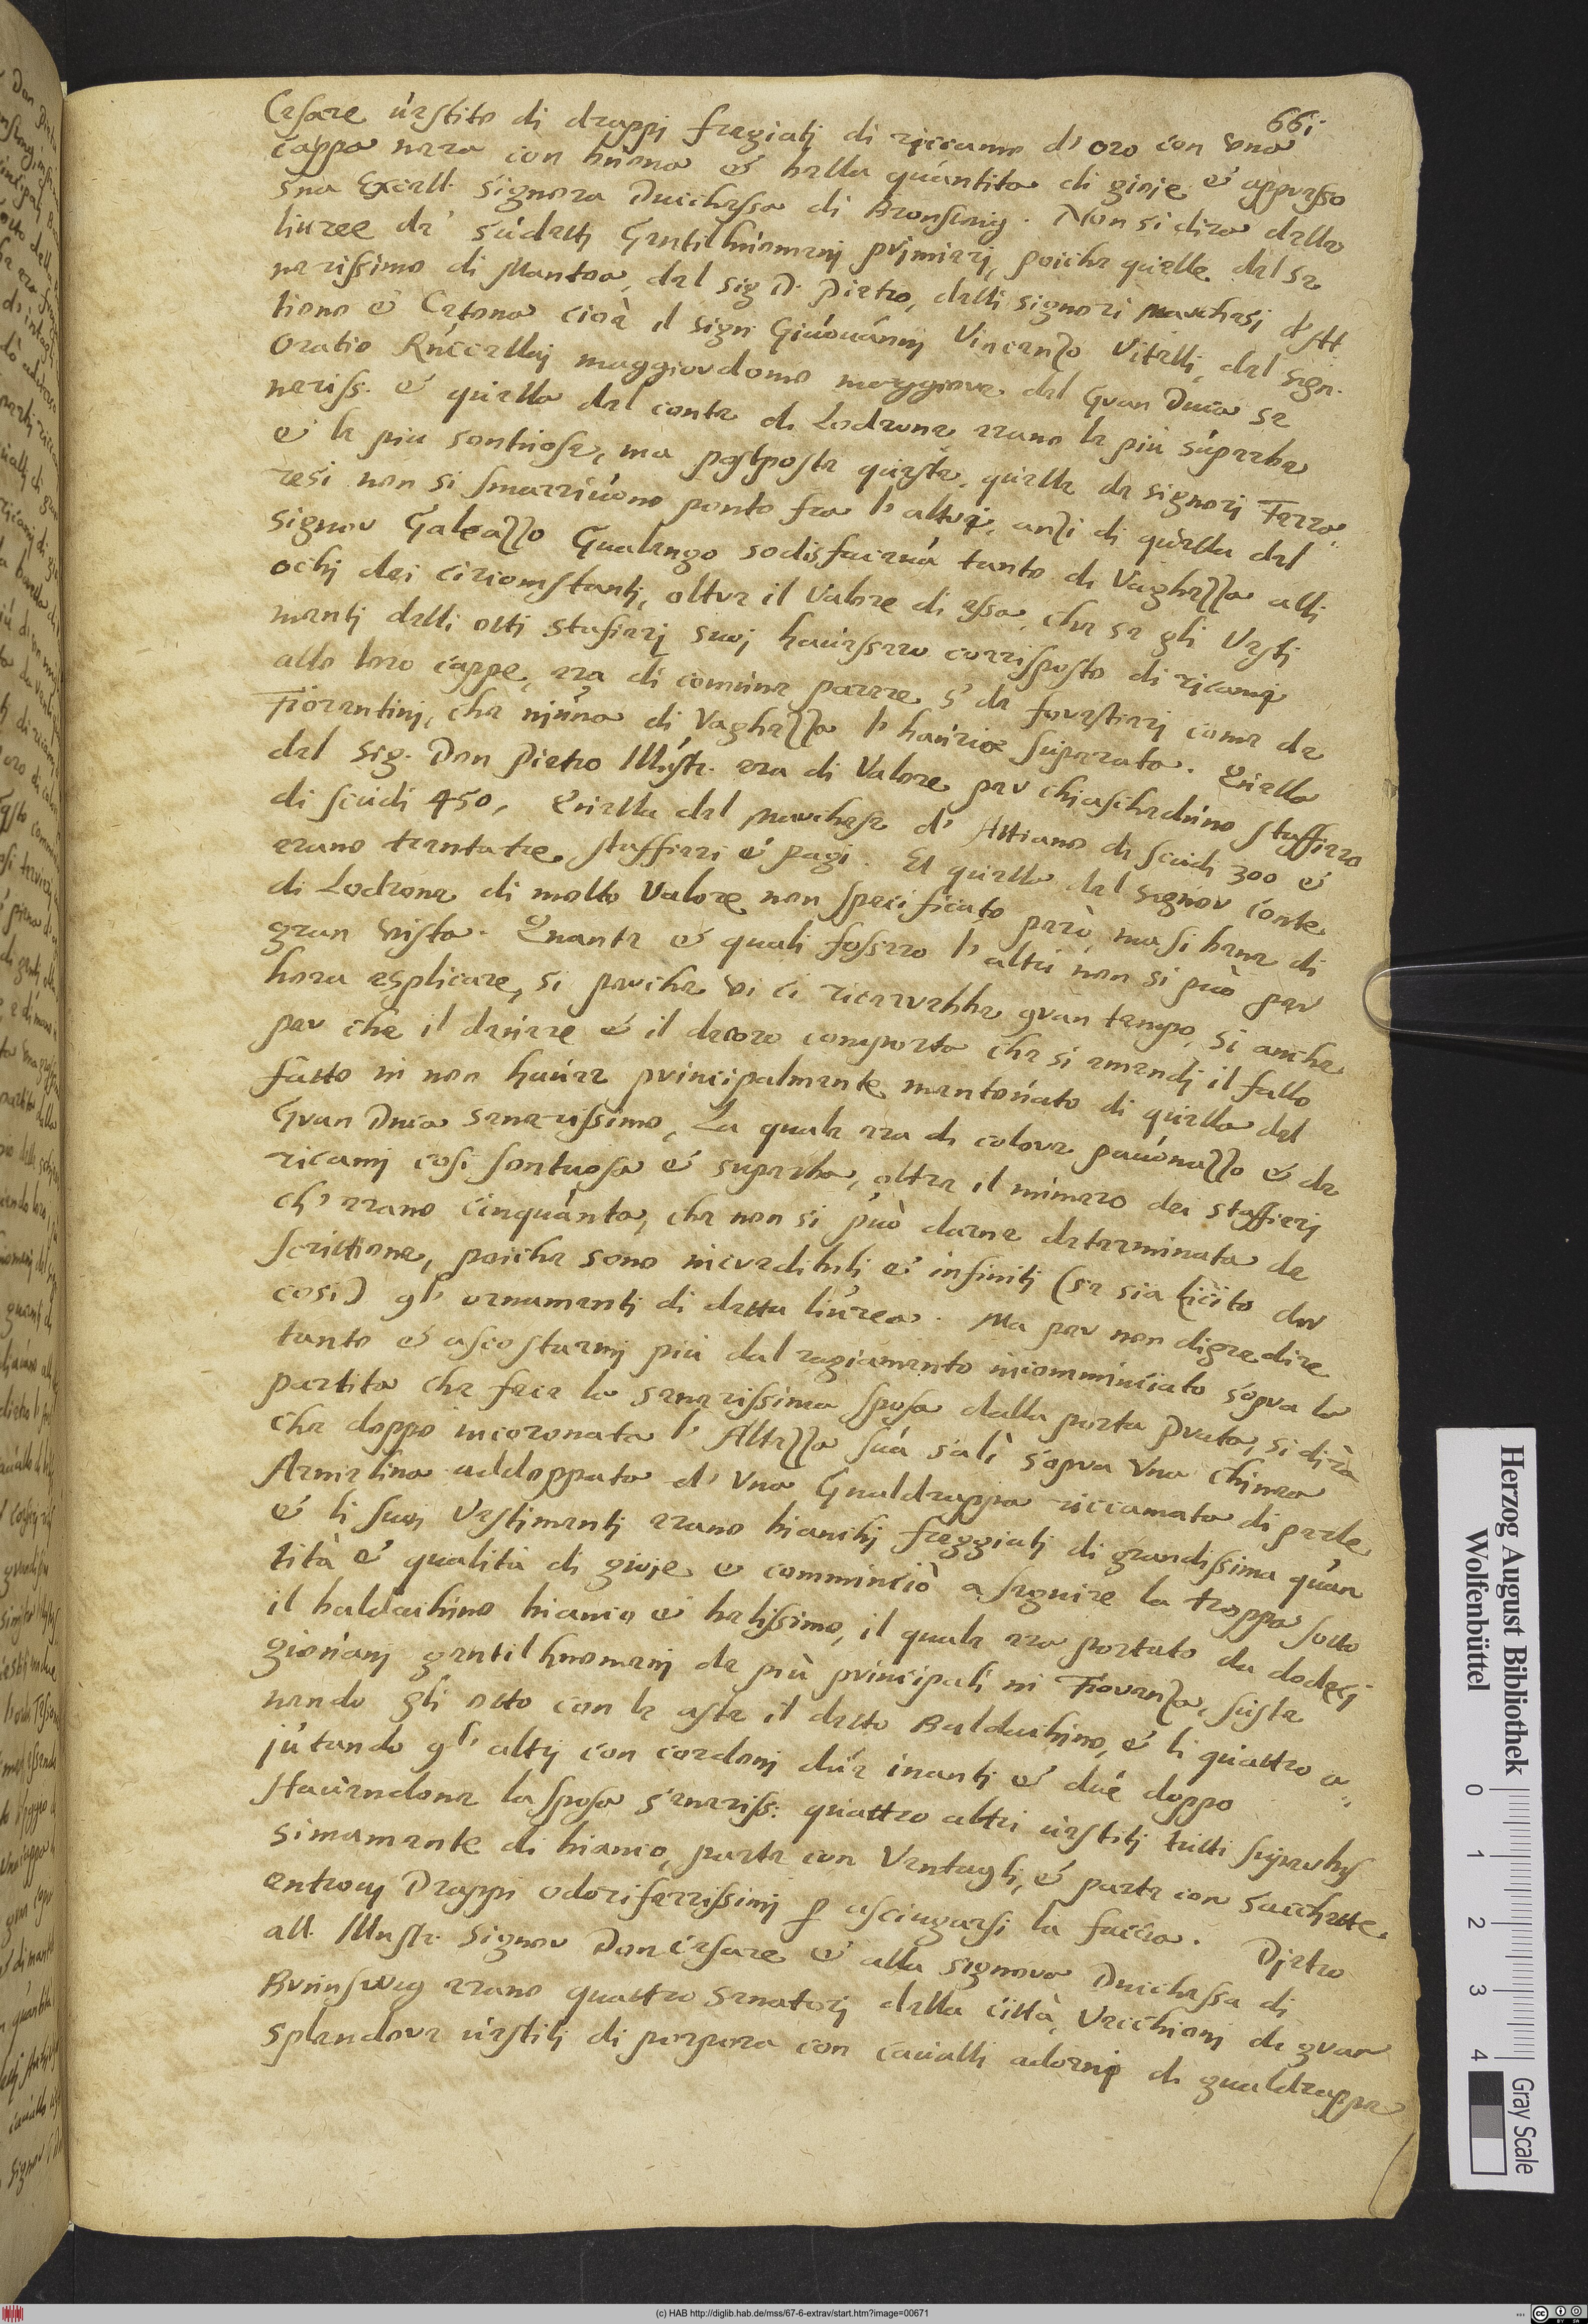 661
Cesare uestito di drappi fregiati di riccamo d'oro con una
cappa nera con buona e bella quantita di gioie e appresso
sua Excell. signora Ducchessa di Bronswig. Non si dira delle
liuree de sudetti Gentilhuomeni primieri, poiche quelle del se
renissimo di Mantoa, del sig D. Pietro, delli signori Marchesi d'Att
tiono e Cetona cioè il sign Giuouanni Vincenzo Vitelli, del sign.
Oratio Ruccellaj maggiordomo maggiore del Gran Duca se
reniss. e quella del conte di Lodrone erano le più superbe
e le piu sontuose, ma postposte queste, quelle de signori Ferra
resi non si smarriuono ponto fra l'altre, anzi di quella del
signor Galeazzo Gualengo sodisfaceua tanto di Vaghezza alli
ochi dei circomstanti, oltre il Valore di essa, che se gli Vesti
menti delli otti stafieri suoi hauessero corrisposto di ricami
alle loro cappe, era di comune parere s' de forestieri come de
Fiorentini, che niuna di Vaghezza l'hauria superato. Quella
del sig. Don Pietro Illustr. era di Valore per chiascheduno staffiero
di scudi 450, Quella del Marchese d'Attiano di scudi 300 e
erano trentatre staffieri e pagi. Et quella del signor Conte
di Lodrone di molto Valore non specificato però, ma si bene di
gran vista. Quante e quali fossero l'altri non si può per
hora esplicare, si perche vi ci ricerebbe gran tempo, si anche
per che il douere e il decoro comporta che si emendi il fallo
fatto in non hauer principalmente mentouato di quella del
Gran Duca serenissimo, La quale era di colore pauonazzo e de
ricami cosi sontuosa e superba, oltra il numero dei staffieri
ch'erano cinquanta, che non si può darne determinata de
scrittione, poiche sono incredibili e infiniti (se sia licito dir
cosi) gl'ornamenti di detta liurea. Ma per non digredire
tanto e ascostarmi più dal ragiamento incomminciato sopra la
partita che fece la serenissima sposa dalla porta Prato, si dirà
che doppo incoronata l'Altezza sua salì sopra Una Chinea
Armelina addoppata d'Una Gualdrappa riccamata di perle
e li suoi Vestimenti erano bianchi freggiati di grandissima quan
tità e qualità di gioie e comminciò a seguire la troppa sotto
il baldachino bianco e belissimo, il quale era portato da dodeci
giouani gentilhuomeni de più principali in Fiorenza, suste
nendo gli otto con le aste il detto Baldachino, e li quattro a
jutando gl'altri con cordoni due inanti e due doppo
Hauendone la sposa sereniss: quattro altri uestiti tutti superbis
simamente di bianco, parte con Ventagli, e parte con sacchette
entroui Drappi odoriferrissimi p asciugarsi la faccia. Djetro
all. Illustr. Signor Don Cesare e alla Signora Ducchessa di
Bruinswig erano quattro senatori della città, Vecchioni di gran
splendore uestiti di porpora con caualli adorni di gualdrappe
Herzog August Bibliothek
Wolfenbüttel
0 1 2 3 4
Gray Scale
(c) HAB http://diglib.hab.de/mss/67-6-extrav/start.htm?image=00671